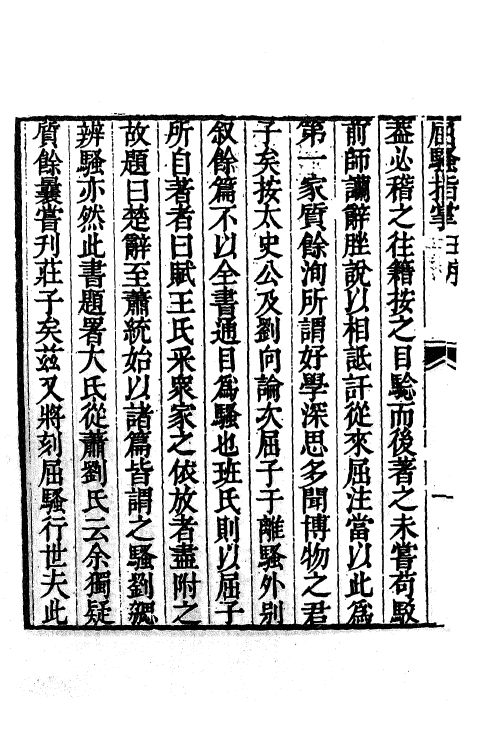 蓋必稽之往籍按之目驗而後著之未嘗苟駁
前師讕辭脞說以相詆訐從來屈注當以此為
第一家質餘洵所謂好學深思多聞博物之君
子矣按太史公及劉向論次屈子于離騷外別
叙餘篇不以全書通目為騷也班氏則以屈子
所自著者曰賦王氏采衆家之依放者盡附之
故題曰楚辭至蕭統始以諸篇皆謂之騷劉勰
辨騷亦然此書題署大氏從蕭劉氏云余獨疑
質餘曩嘗刋莊子矣茲又將刻屈騷行世夫此